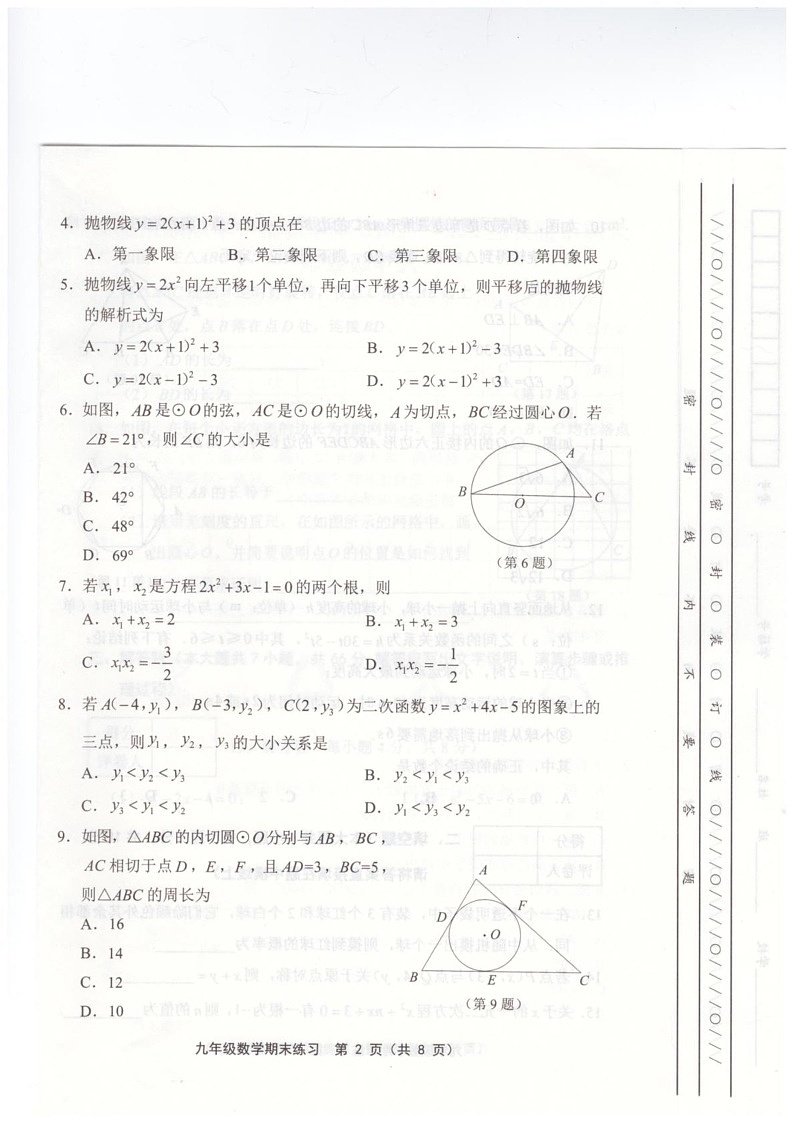 4．抛物线 y = 2(x+1)² + 3 的顶点在
A．第一象限 B．第二象限 C．第三象限 D．第四象限
5．抛物线 y = 2x² 向左平移1个单位，再向下平移3个单位，则平移后的抛物线
的解析式为
A． y = 2(x+1)² + 3 B． y = 2(x+1)² − 3
C． y = 2(x−1)² − 3 D． y = 2(x−1)² + 3
6．如图，AB 是⊙O的弦，AC 是⊙O的切线，A为切点，BC 经过圆心O．若
∠B = 21°，则∠C 的大小是
A． 21°
B． 42°
C． 48°
D． 69°
A
B
O
C
（第 6 题）
7．若 x₁，x₂ 是方程 2x² + 3x − 1 = 0 的两个根，则
A． x₁ + x₂ = 2 B． x₁ + x₂ = 3
C． x₁x₂ = −3/2 D． x₁x₂ = −1/2
8．若 A(−4, y₁)，B(−3, y₂)，C(2, y₃) 为二次函数 y = x² + 4x − 5 的图象上的
三点，则 y₁，y₂，y₃ 的大小关系是
A． y₁ < y₂ < y₃ B． y₂ < y₁ < y₃
C． y₃ < y₁ < y₂ D． y₁ < y₃ < y₂
9．如图，△ABC 的内切圆⊙O分别与 AB，BC，
AC 相切于点 D，E，F，且 AD=3，BC=5，
则△ABC 的周长为
A．16
B．14
C．12
D．10
A
D
F
O
B
E
C
（第 9 题）
九年级数学期末练习 第 2 页（共 8 页）
密 封 线 内 不 要 答 题
密 ○ 封 ○ 装 ○ 订 ○ 线